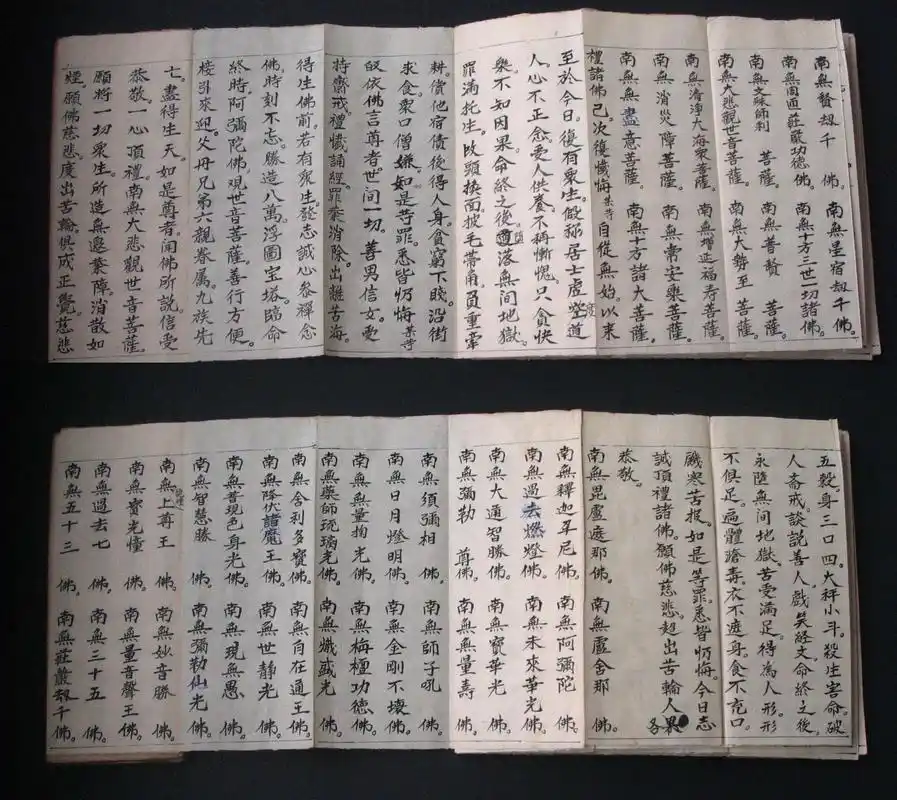 南無賢劫千佛。南無星宿劫千佛。
南無周迊莊嚴功德佛。南無十方三世一切諸佛。
南無文殊師利菩薩。南無普賢菩薩。
南無大悲觀世音菩薩。南無大勢至菩薩。
南無清淨大海衆菩薩。南無增延福壽菩薩。
南無消災障菩薩。南無常安樂菩薩。
南無無盡意菩薩。南無十方諸大菩薩。
禮諸佛已。次復懺悔某等自從無始。以來
至於今日。復有衆生。做居士虛空道
人。心不正念。愛人供養。不稱慚愧。只貪快
樂。不知因果。命終之後。墮落無間地獄。
罪滿托生。改頭換面。披毛帶角。負重牽
耕。償他宿債。後得人身。貧窮下賤。沿街
求食。衆口僧嫌。如是等罪。悉皆懺悔某等
皈依佛言尊者。世間一切。善男信女。受
持齋戒。禮懺誦經。罪業消除。出離苦海。
得生佛前。若有衆生。發志誠心。參禪念
佛。時刻不忘。勝造八萬。浮圖宝塔。臨命
終時。阿彌陀佛。現世音菩薩。善行方便。
接引來迎。父母兄弟。六親眷属。九族先
七。盡得生天。如是尊者。聞佛所說。信受
恭敬。一心頂禮。南無大悲觀世音菩薩。
願將一切衆生。所造無邊業障。消散如
煙。願佛慈悲。度出苦輪。俱成正覺。慈悲
五穀。身三口四。大秤小斗。殺生害命。破
人斎戒。談說善人。戲笑経文。命終之後。
永墮無間地獄。苦受滿足。得為人形。形
不俱足。遍體瘡毒。衣不遮身。食不充口。
飢寒苦报。如是等罪。悉皆懺悔。今日志
誠頂禮諸佛。願佛慈悲。超出苦輪。人各
恭敬。
南無毘盧遮那佛。南無盧舍那佛。
南無釋迦牟尼佛。南無阿彌陀佛。
南無過去燃燈佛。南無未來華光佛。
南無大通智勝佛。南無寶華光佛。
南無彌勒尊佛。南無無量壽佛。
南無須彌相佛。南無師子吼佛。
南無日月燈明佛。南無金剛不壞佛。
南無無量掬光佛。南無栴檀功德佛。
南無藥師琉璃光佛。南無熾盛光佛。
南無舍利多寶佛。南無自在通王佛。
南無降伏諸魔王佛。南無世静光佛。
南無普現色身光佛。南無現無愚佛。
南無智慧勝佛。南無彌勒仙光佛。
南無上尊王佛。南無妙音勝佛。
南無寶光幢佛。南無無量音聲王佛。
南無過去七佛。南無三十五佛。
南無五十三佛。南無莊嚴劫千佛。